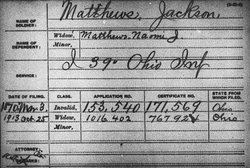 NAME OF SOLDIER: Matthews, Jackson,
NAME OF DEPENDENT: Widow, Matthews, Naomi J
Minor,
SERVICE: I 39" Ohio Inf
DATE OF FILING. CLASS. APPLICATION NO. CERTIFICATE NO. STATE FROM WHICH FILED.
Nov. 3, Invalid, 153,540 171,569 Ohio
1913 Oct. 25 Widow, 1016.402 767.924 Ohio
Minor,
ATTORNEY: